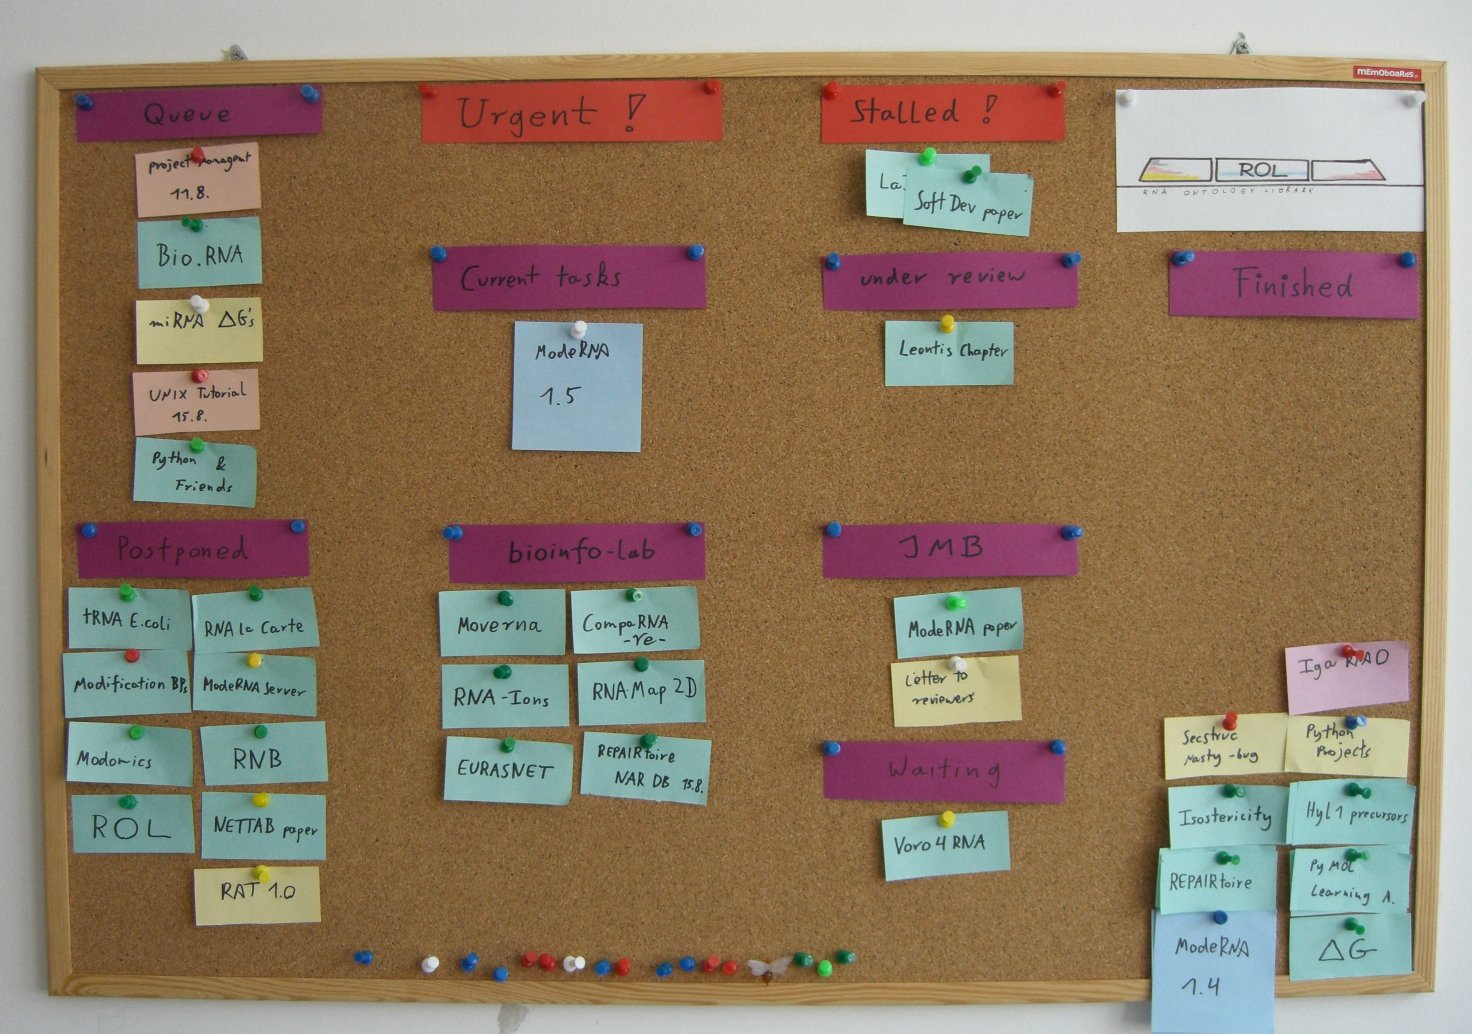 mEmOboaRds.pl
Queue
project managent
11.8.
Bio.RNA
miRNA ΔG's
UNIX Tutorial
15.8.
Python &
Friends
Urgent !
Current tasks
ModeRNA
1.5
Stalled !
La.
Soft Dev paper
under review
Leontis Chapter
ROL
RNA ONTOLOGY LIBRARY
Finished
Postponed
tRNA E.coli
RNA la Carte
Modification BPs
ModeRNA Server
Modomics
RNB
ROL
NETTAB paper
RAT 1.0
bioinfo-lab
Moverna
CompaRNA
-re-
RNA-Ions
RNA.Map 2D
EURASNET
REPAIRtoire
NAR DB 15.8.
JMB
ModeRNA paper
Letter to
reviewers
Waiting
Voro4RNA
Iga RNAO
Secstruc
nasty-bug
Python
Projects
Isostericity
Hyl 1 precursors
REPAIRtoire
PyMOL
Learning A.
ModeRNA
1.4
ΔG